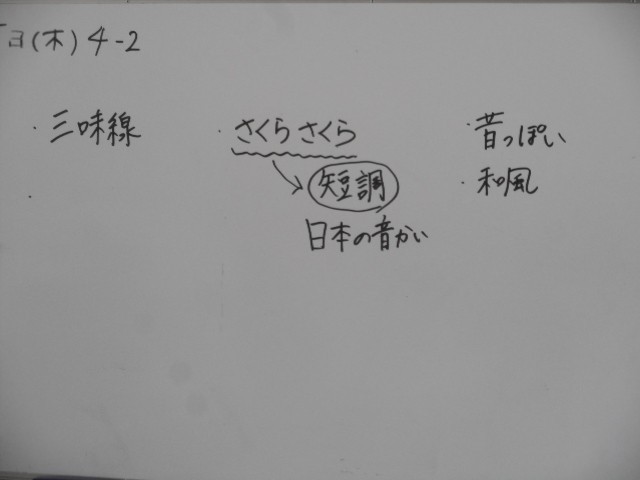 日(木) 4-2
・三味線
・さくらさくら
短調
日本の音かい
・昔っぽい
・和風